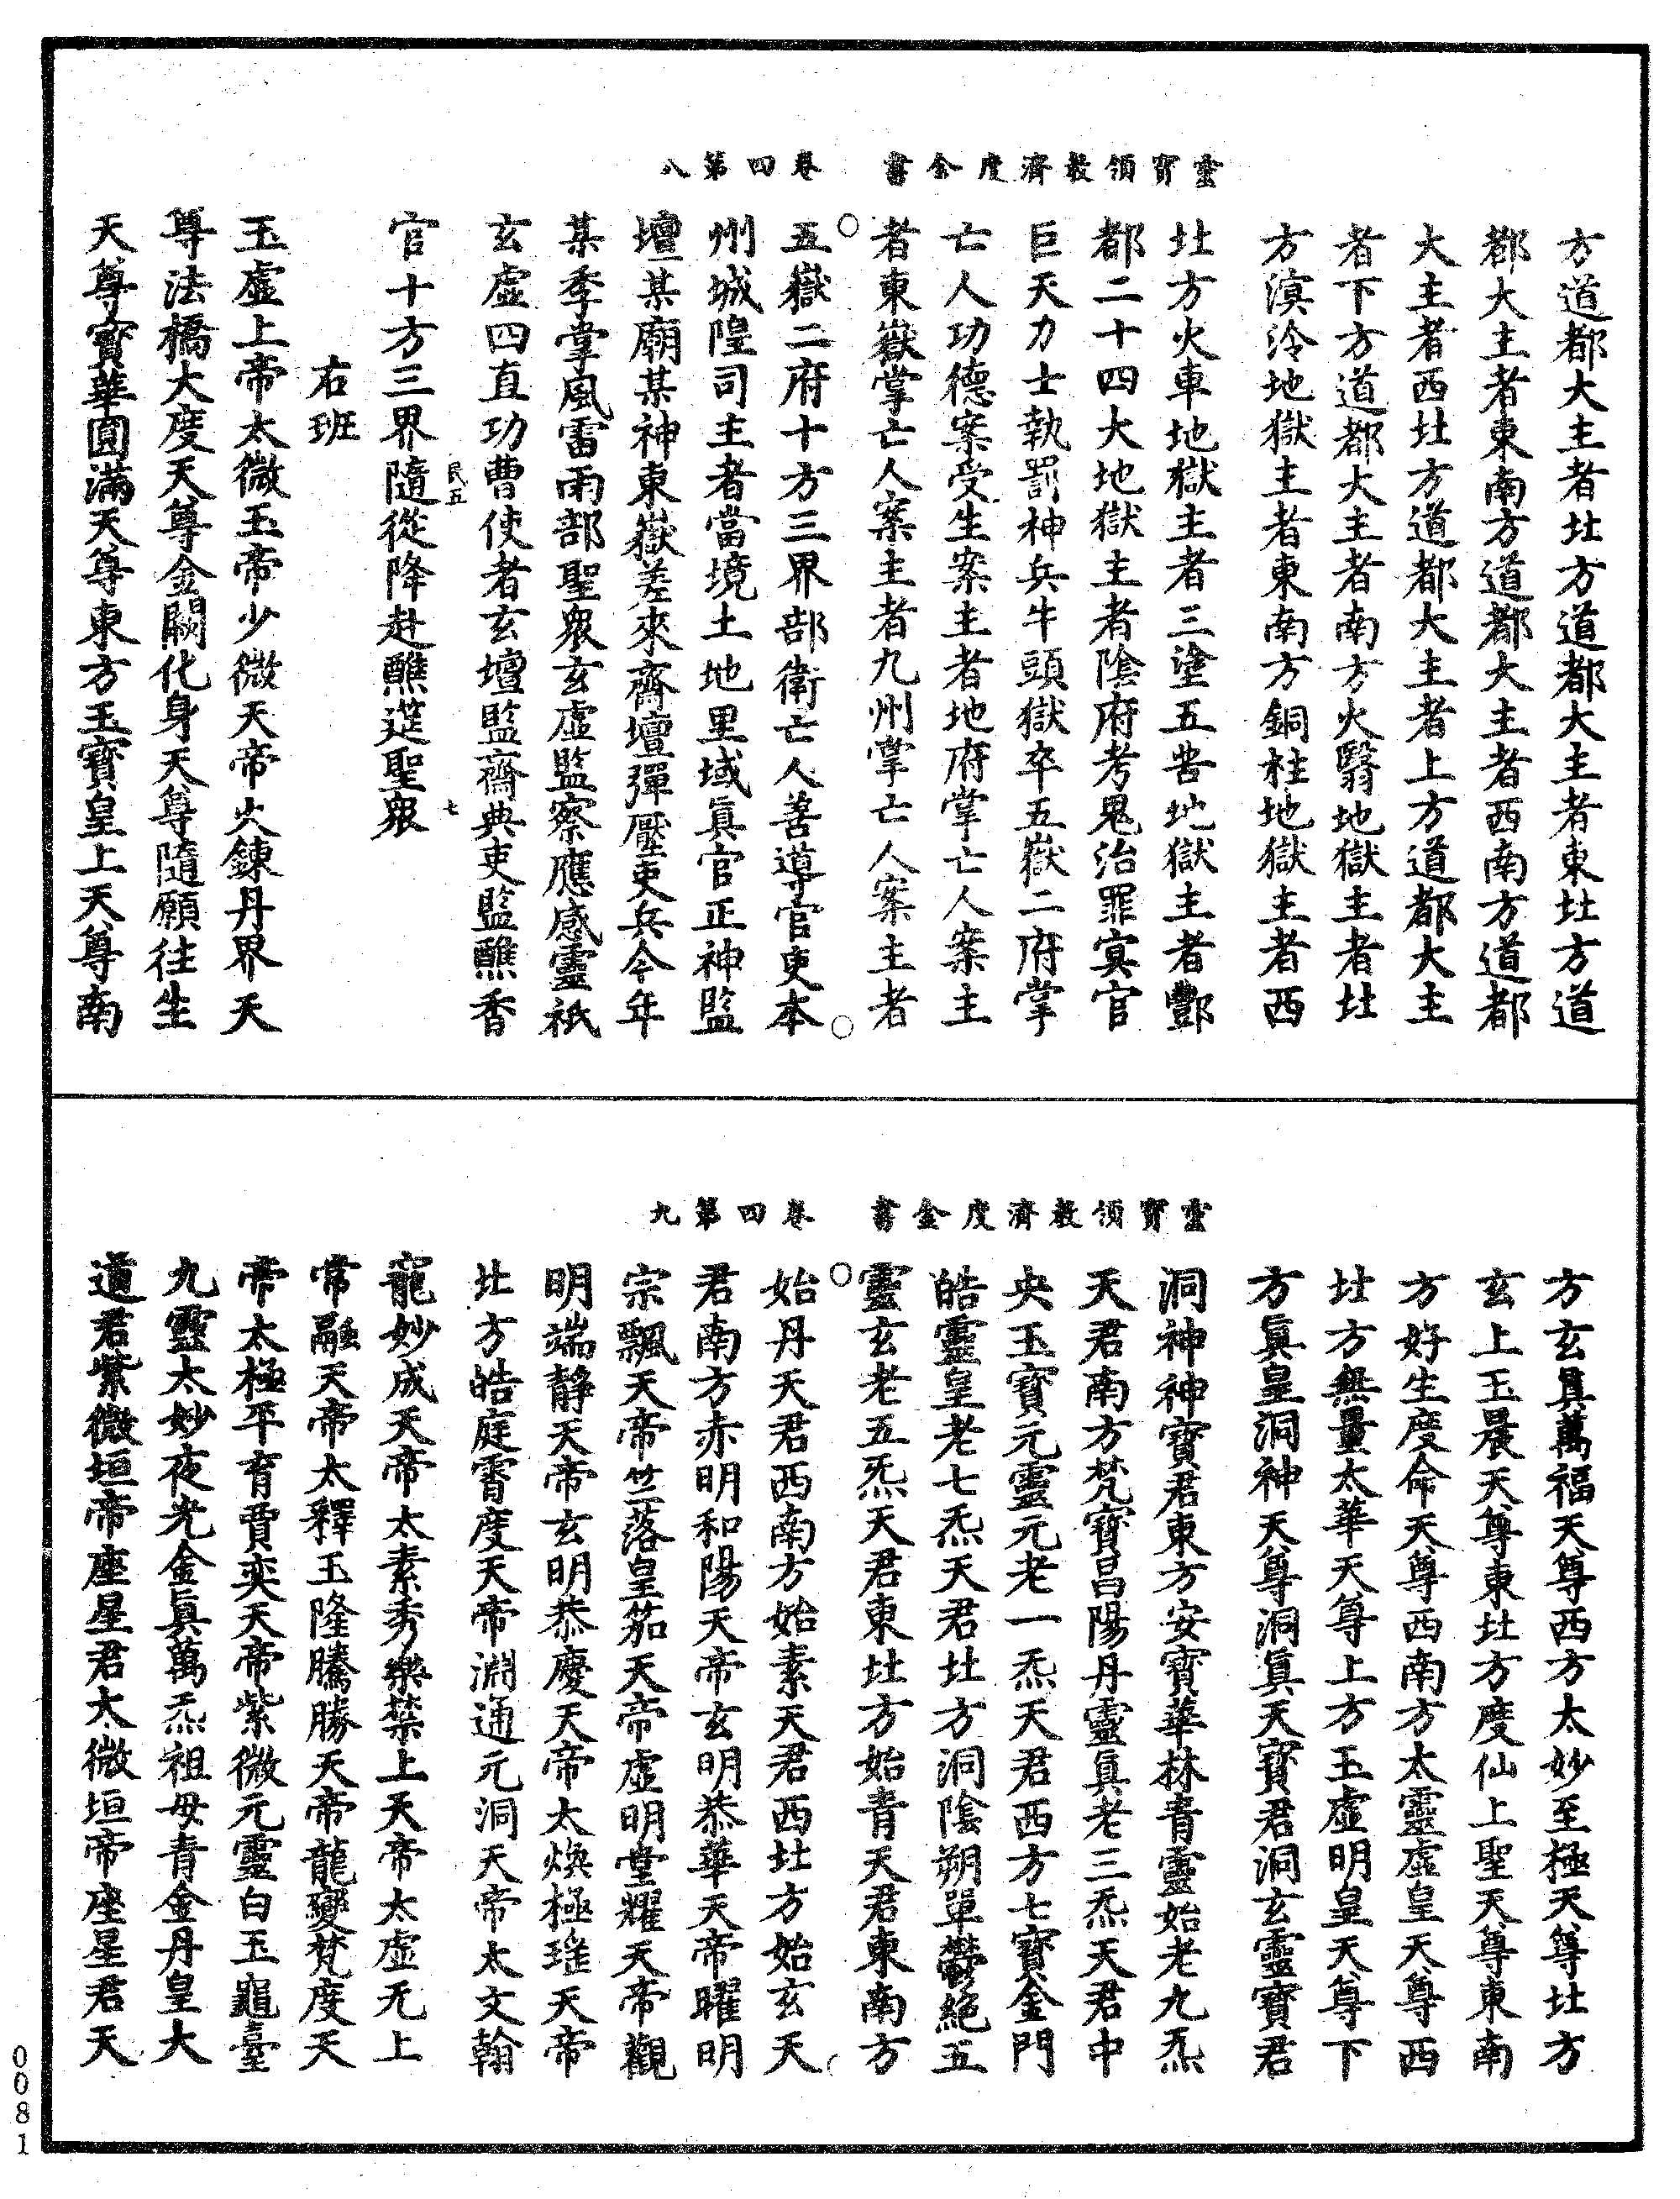 靈寶領教濟度金書　卷四第八
方道都大主者北方道都大主者東北方道
都大主者東南方道都大主者西南方道都
大主者西北方道都大主者上方道都大主
者下方道都大主者南方火翳地獄主者北
方溟泠地獄主者東南方銅柱地獄主者西
北方火車地獄主者三塗五苦地獄主者酆
都二十四大地獄主者陰府考鬼治罪冥官
巨天力士執罰神兵牛頭獄卒五嶽二府掌
亡人功德案受生案主者地府掌亡人案主
者東嶽掌亡人案主者九州掌亡人案主者
五嶽二府十方三界部衛亡人善導官吏本
州城隍司主者當境土地里域真官正神監
壇某廟某神東嶽差來齋壇彈壓吏兵今年
某季掌風雷雨部聖衆玄虛監察應感靈祇
玄虛四直功曹使者玄壇監齋典吏監醮香
民五　七
官十方三界隨從降赴醮筵聖衆
右班
玉虛上帝太微玉帝少微天帝火鍊丹界天
尊法橋大度天尊金闕化身天尊隨願往生
天尊寶華圓滿天尊東方玉寶皇上天尊南
靈寶領教濟度金書　卷四第九
方玄真萬福天尊西方太妙至極天尊北方
玄上玉晨天尊東北方度仙上聖天尊東南
方好生度命天尊西南方太靈虛皇天尊西
北方無量太華天尊上方玉虛明皇天尊下
方真皇洞神天尊洞真天寶君洞玄靈寶君
洞神神寶君東方安寶華林青靈始老九炁
天君南方梵寶昌陽丹靈真老三炁天君中
央玉寶元靈元老一炁天君西方七寶金門
皓靈皇老七炁天君北方洞陰朔單鬱絕五
靈玄老五炁天君東北方始青天君東南方
始丹天君西南方始素天君西北方始玄天
君南方赤明和陽天帝玄明恭華天帝曜明
宗飄天帝竺落皇笳天帝虛明堂耀天帝觀
明端靜天帝玄明恭慶天帝太煥極瑤天帝
北方皓庭霄度天帝淵通元洞天帝太文翰
寵妙成天帝太素秀樂禁上天帝太虛无上
常融天帝太釋玉隆騰勝天帝龍變梵度天
帝太極平育賈奕天帝紫微元靈白玉龜臺
九靈太妙夜光金真萬炁祖母青金丹皇大
道君紫微垣帝座星君太微垣帝座星君天
0081